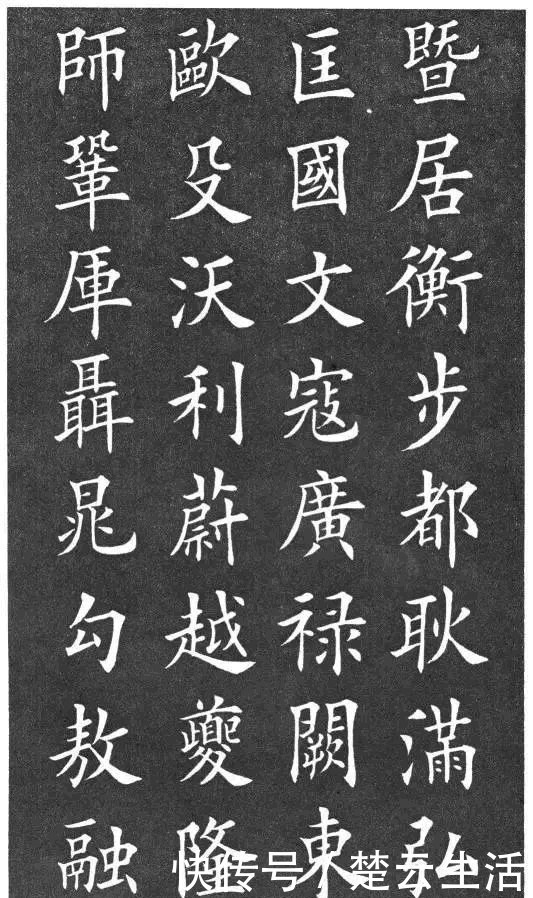 暨居衡步都耿滿弘
匡國文寇廣禄闕東
歐殳沃利蔚越夔隆
師鞏厙聶晁勾敖融
快传号 / 楚云生活